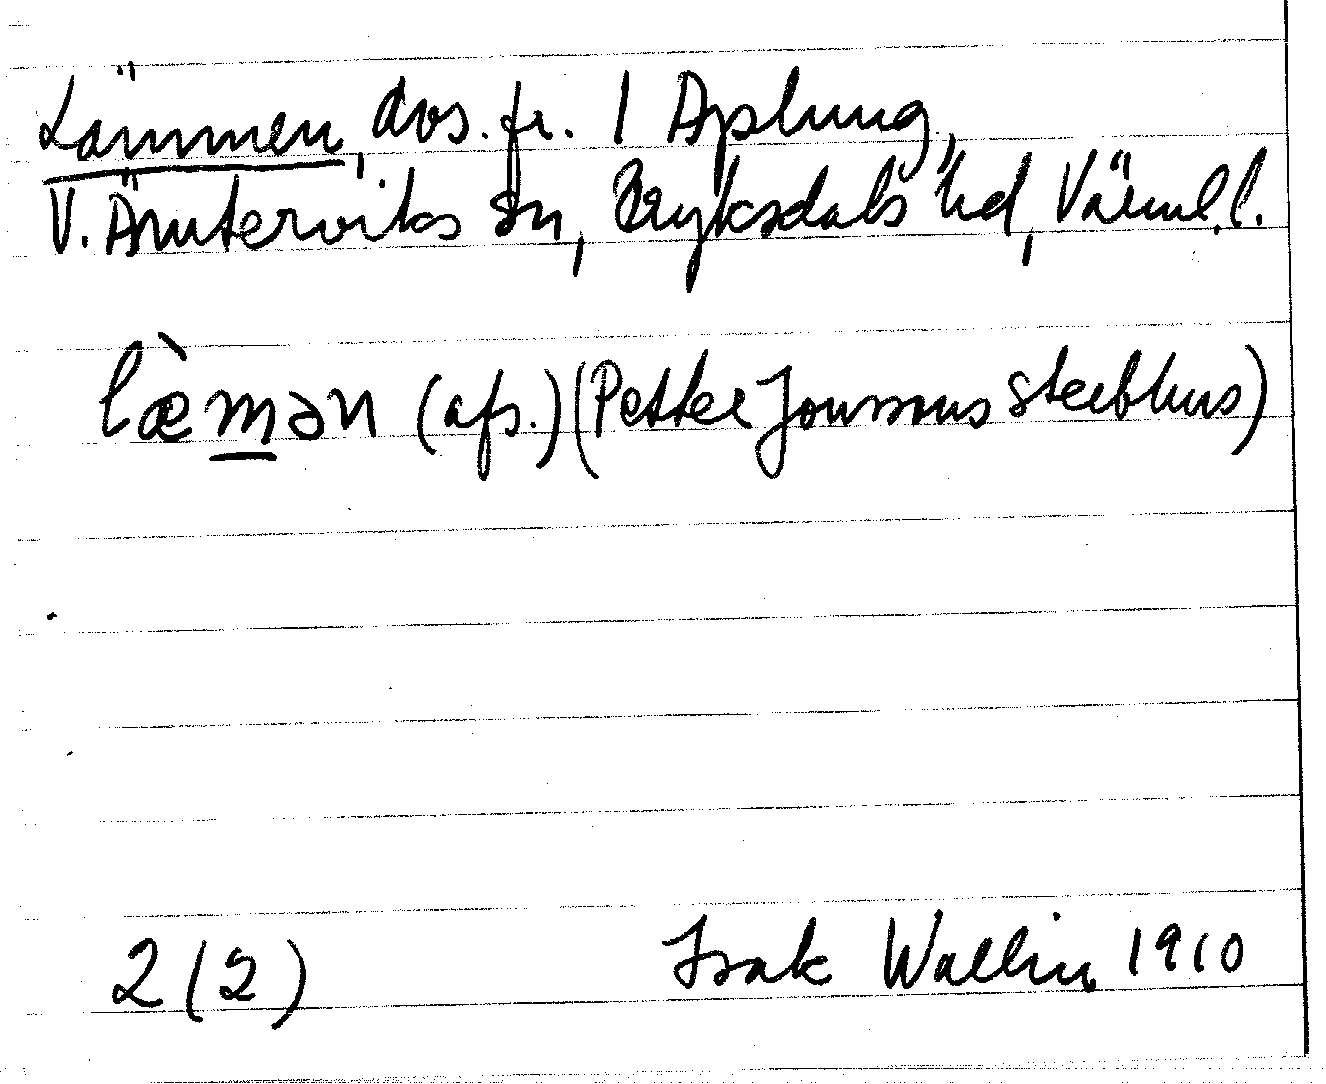 Lämmen, avs. fr. 1 Aplung,
V. Ämterviks sn, Fryksdals hd, Värml. l.
læ̀m̲ən (afs.) (Petter Jonssons sterbhus)
2 (2) Isak Wallin 1910